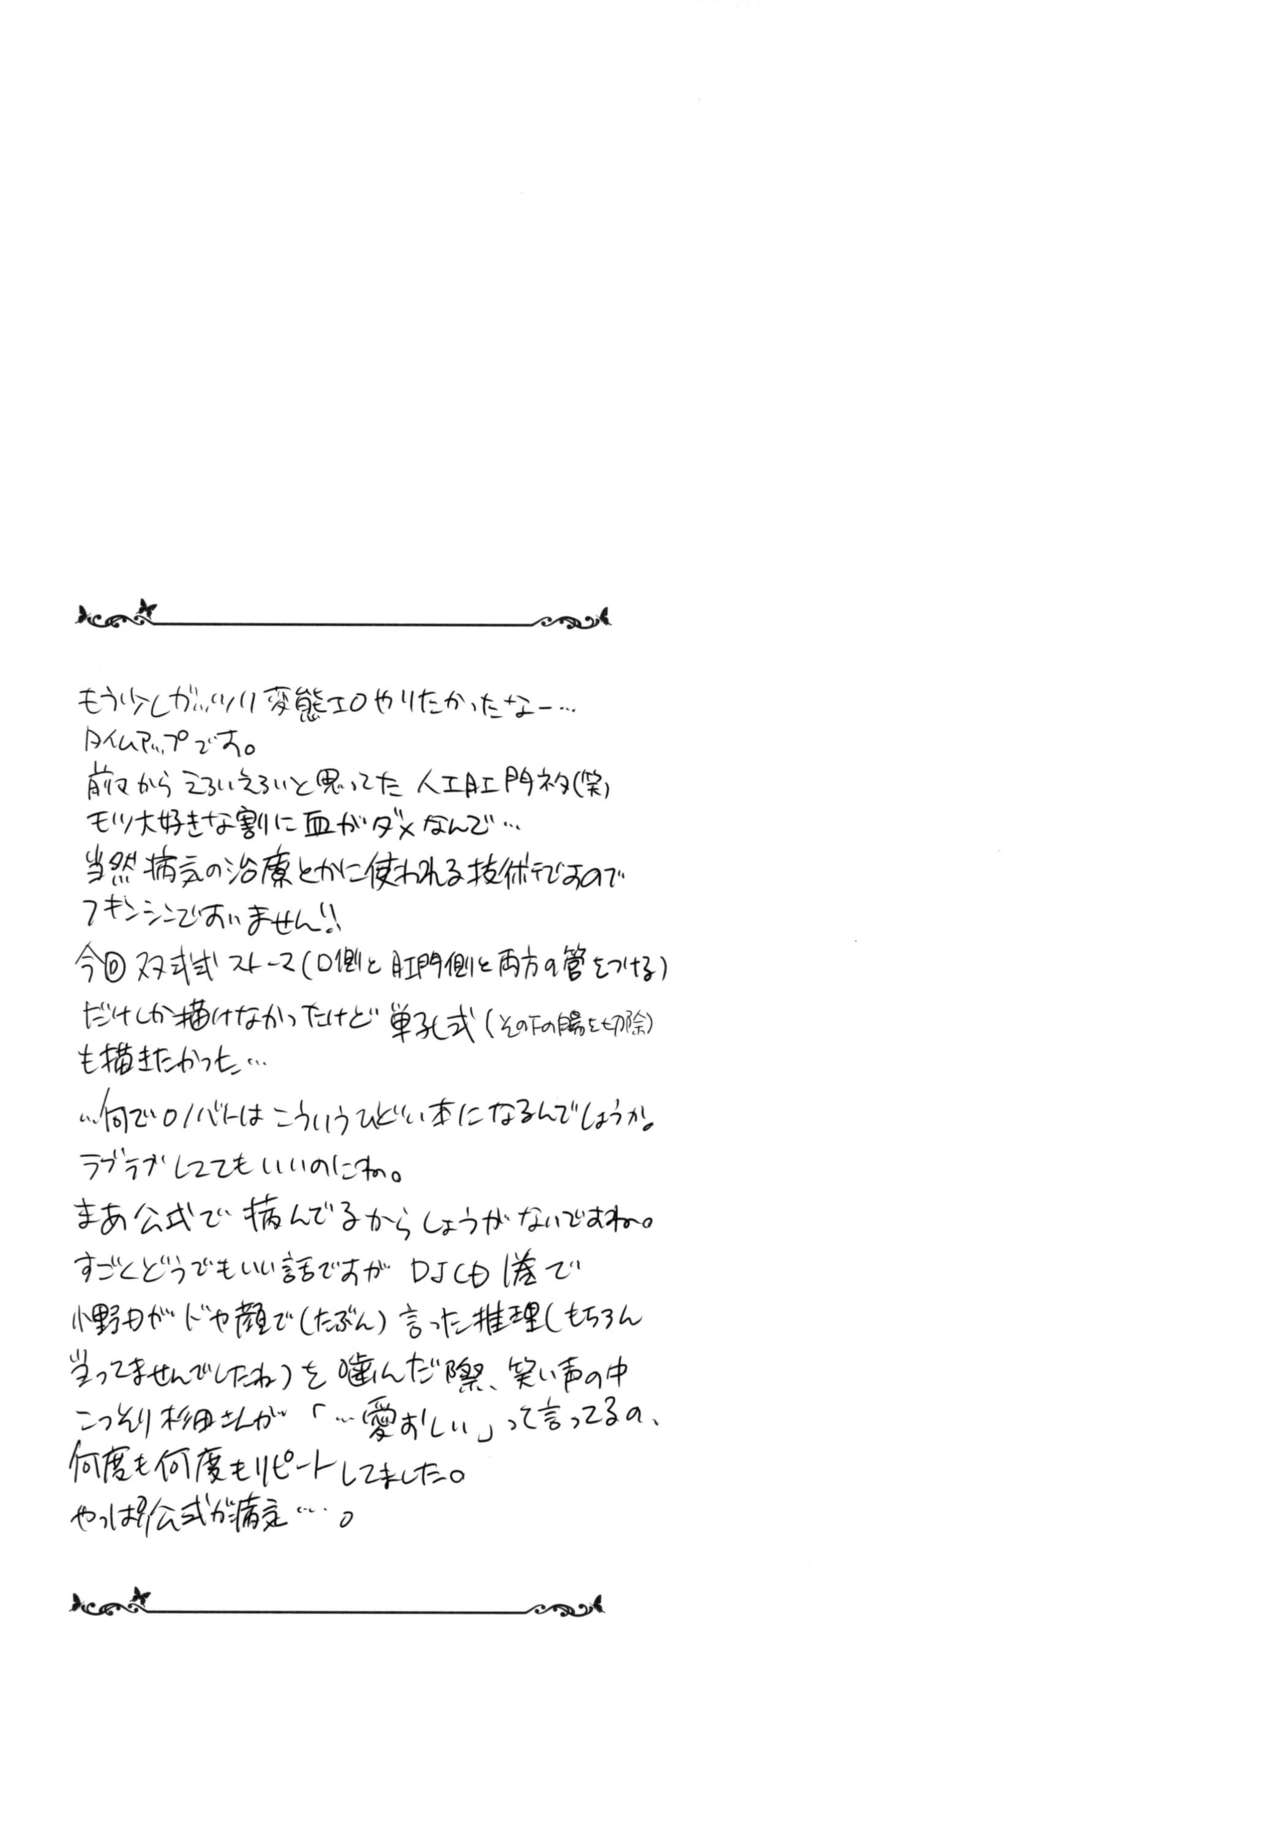 もう少しガッツリ変態エロやりたかったなー…
タイムアップです。
前々からえろいえろいと思ってた人工肛門ネタ(笑)
モツ大好きな割に血がダメなんで…
当然病気の治療とかに使われる技術ですので
フキンシンですいません!!
今回双孔式ストーマ(口側と肛門側と両方の管をつける)
だけしか描けなかったけど単孔式(その下の腸を切除)
も描きたかった…
…何でロノバトはこういうひどい本になるんでしょうか。
ラブラブしててもいいのにね。
まあ公式で病んでるからしょうがないですね。
すごくどうでもいい話ですがDJCD1巻で
小野Dがドヤ顔で(たぶん)言った推理(もちろん
当ってませんでしたね)を噛んだ際、笑い声の中
こっそり杉田さんが「…愛おしい」って言ってるの、
何度も何度もリピートしてました。
やっぱり公式が病…。